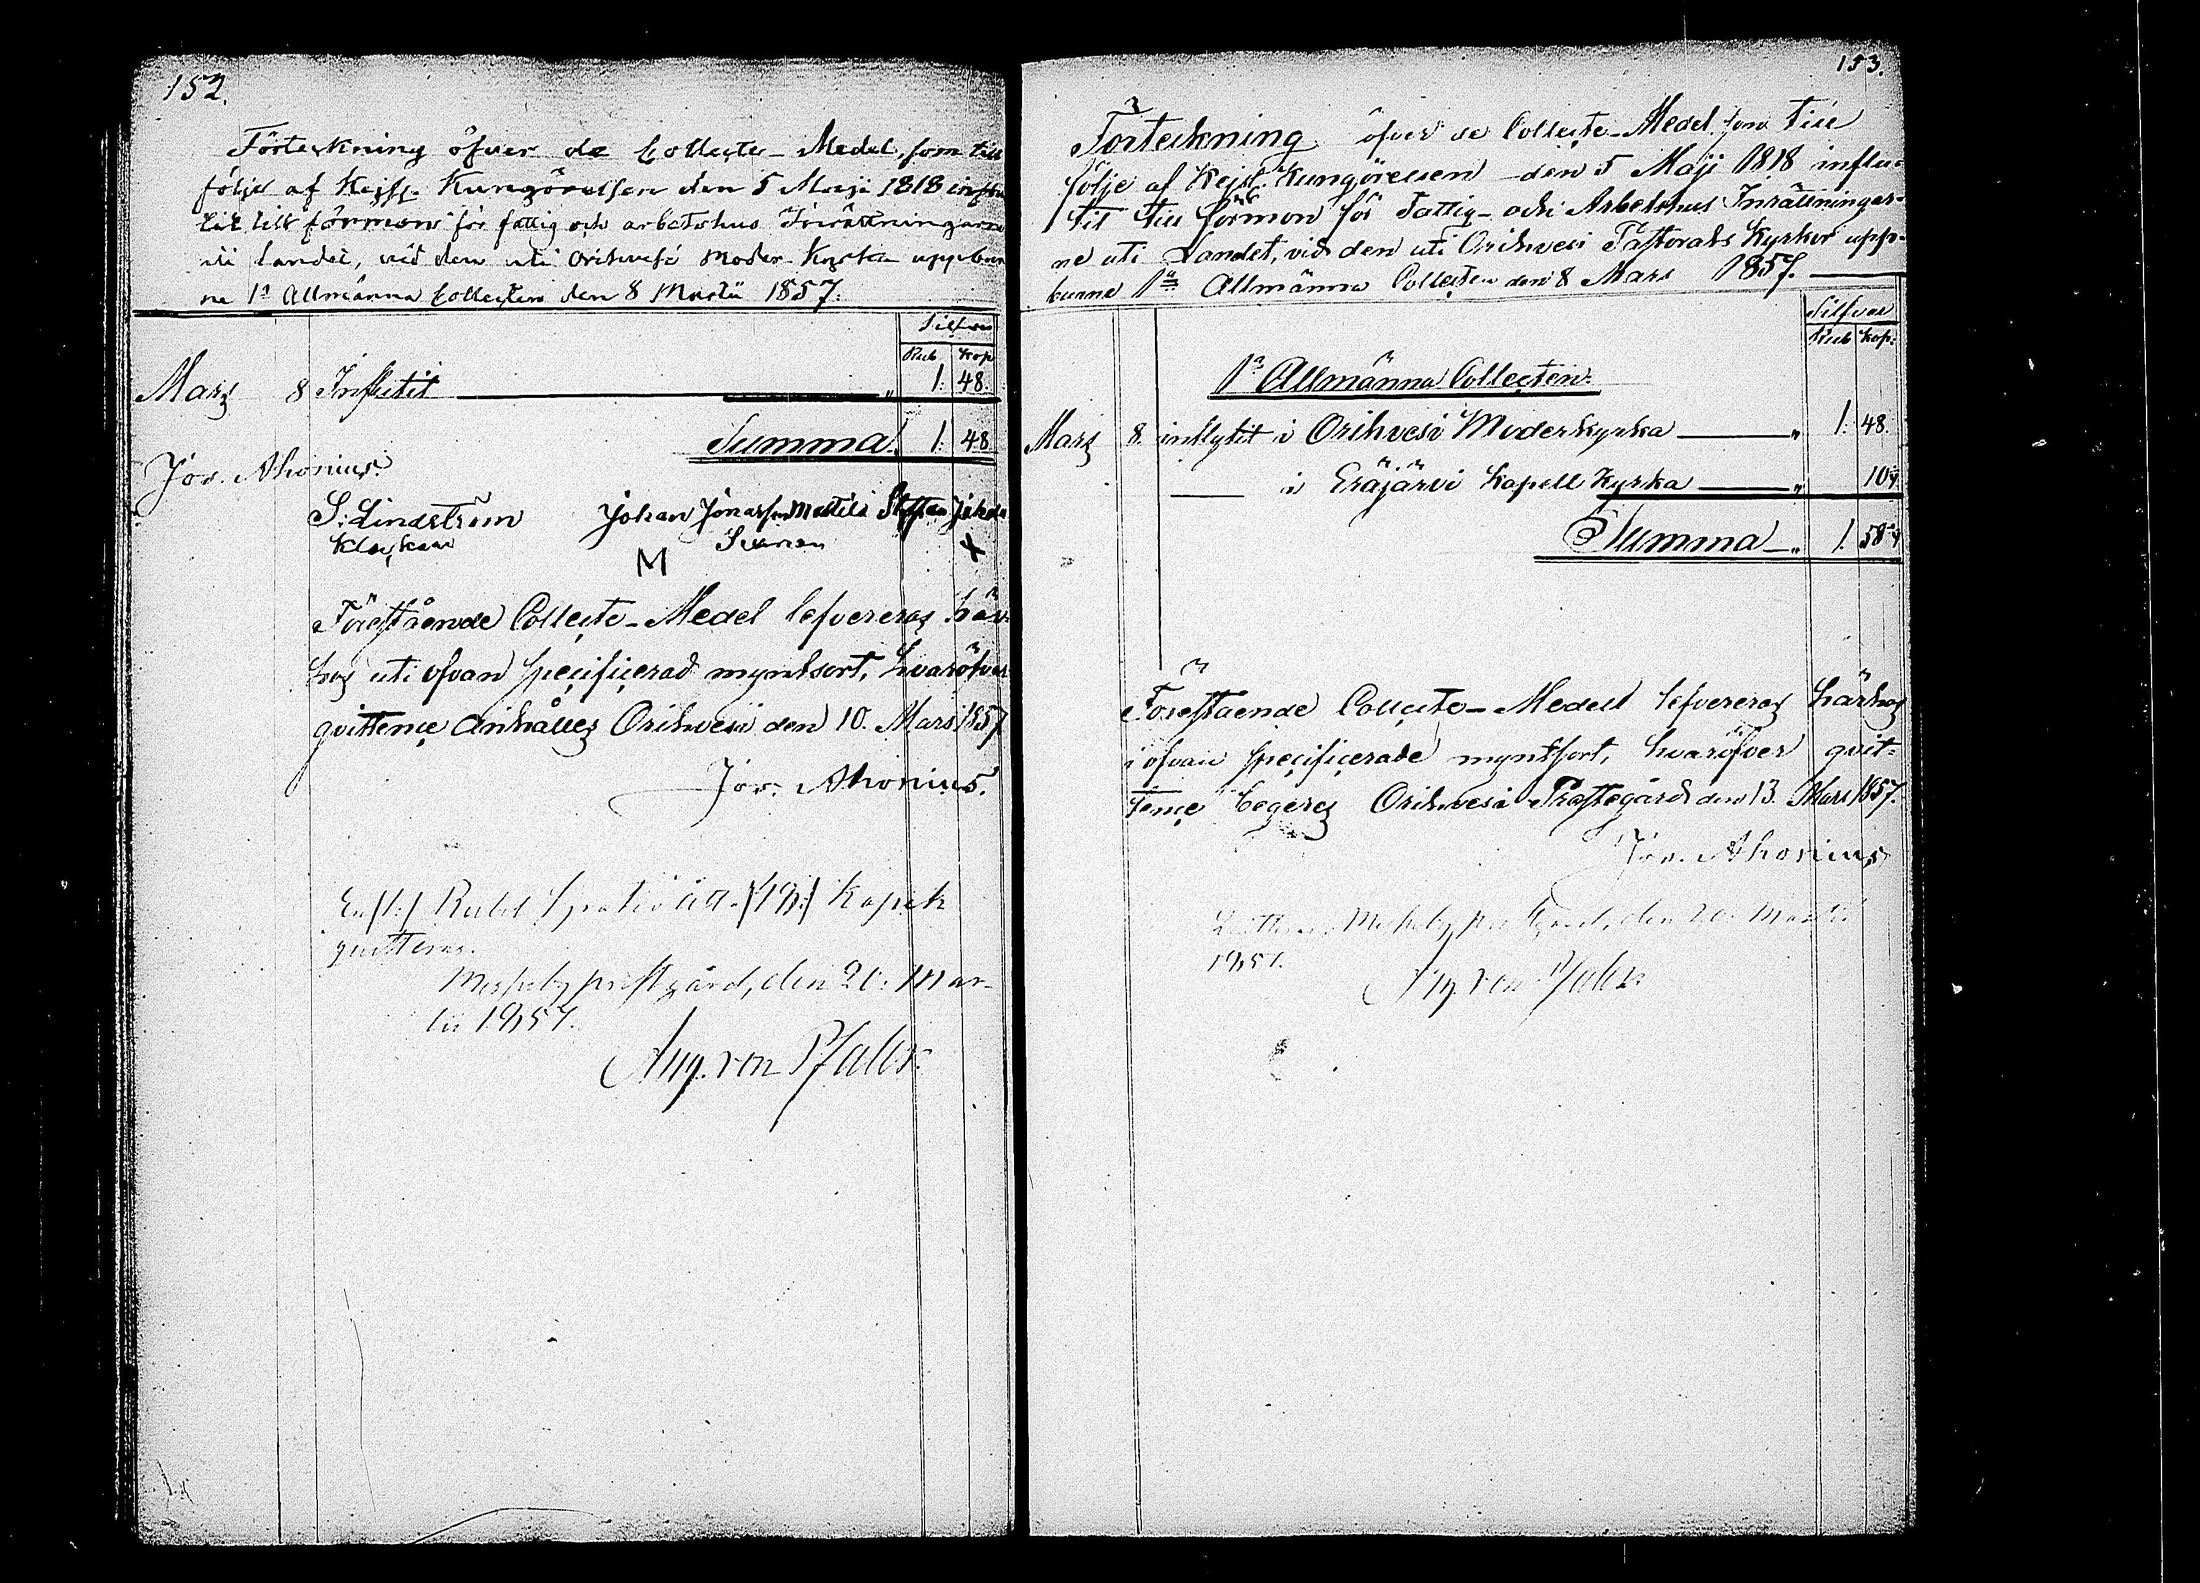 152.
Förteckning öfver de Collecte-Medel, som till
följe af Kejsr. Kungörelsen den 5 Maji 1818 influ
tit till förmon för fattig och arbetshus Inrättningarne
uti landet, vid den uti Orihvesi Moder Kyrka uppbur
na 1a Allmänna Collecten den 8 Martii 1857.
Silfver
Rub. Kop.
Mars 8 Influtit 1: 48.
Summa 1: 48
Jos. Ahonius.
S. Lindström Johan Jonasson Mattila Staffan
Klockare
M X
Förestående Collecte-Medel lefvereras här-
hos uti ofvan specificerad myntsort, hvaröfver
qvittence anhålles Orihvesi den 10. Mars 1857
Jos. Ahonius.
En /1:/ Rubel fyratio åtta /48:/ Kopek
quitteras.
Messuby prestgård, den 20. Mar-
tii 1857.
Aug. von Pfaler.
153.
Förteckning öfver de Collecte-Medel, som till
följe af Kejsl. Kungörelsen den 5 Maji 1818 influ-
tit till förmon för Fattig- och Arbetshus Inrättningar-
ne uti Landet, vid den uti Orihvesi Pastorats Kyrkor upp-
burne 1a Allmänna Collecten den 8 Mars 1857.
Silfver
Rub Kop.
1a Allmänna Collecten.
Mars 8. influtit i Orihvesi Moderkyrka 1: 48.
i Eräjärvi Kapell Kyrka 10
Summa 1. 58
Förestående Collecte-Medel lefvereras härhos
i ofvan specificerade myntsort, hvaröfver qvit-
tence begeres Orihvesi Prestegård den 13. Mars 1857.
Jos. Ahonius
Quitteras Messuby prestgård, den 20. Martii
1857.
Aug. von Pfaler